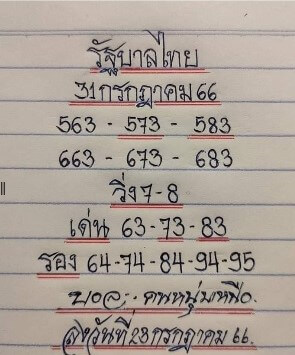 รัฐบาลไทย
31 กรกฎาคม 66
563 - 573 - 583
663 - 673 - 683
วิ่ง 7-8
เด่น 63-73-83
รอง 64-74-84-94-95
บอล : คนหนุ่มเหนือ.
ส่งวันที่ 28 กรกฎาคม 66.